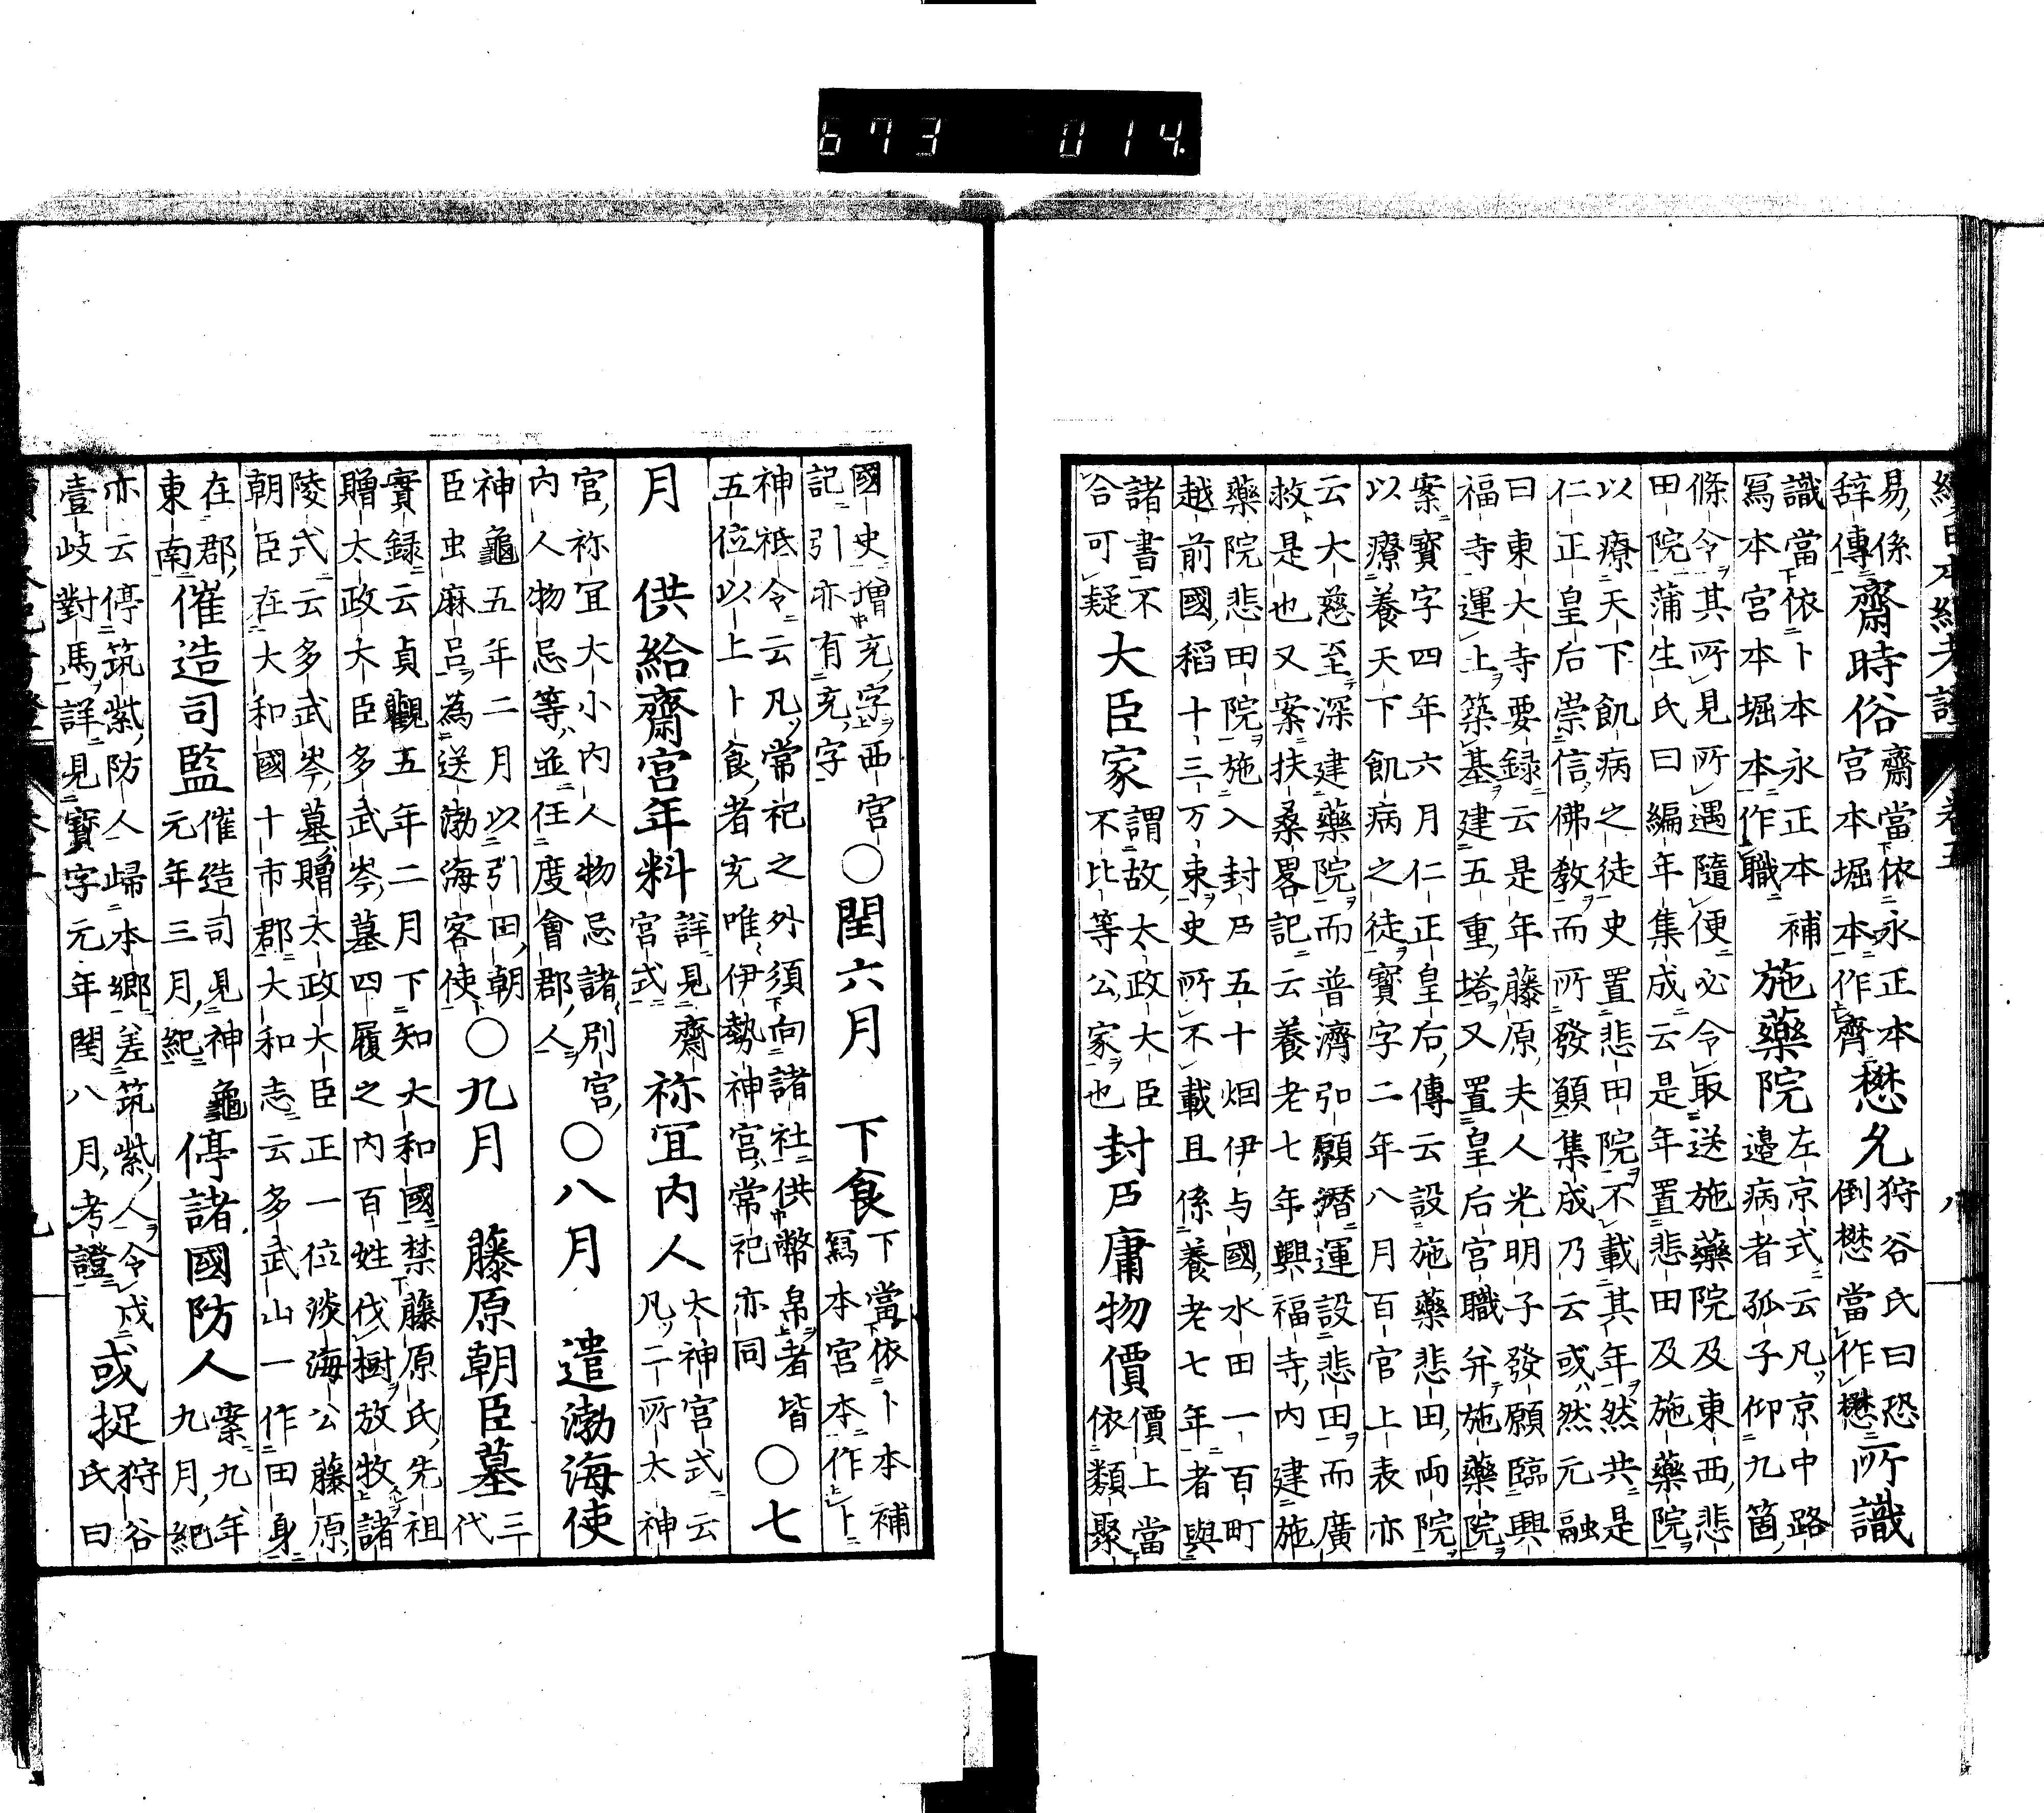 673 014
易、係辞傳齋時俗齋當依永正本宮本堀本作齊懋允狩谷氏曰恐倒懋當作懋所識
識當依卜本永正本補冩本宮本堀本作職施藥院左京式云凡京中路邉病者孤子仰九箇
條令其所見所遇隨便必令取送施藥院及東西悲田院蒲生氏曰編年集成云是年置悲田及施藥院
以療天下飢病之徒史置悲田院不載其年然共是仁正皇后崇信佛教而所發願集成乃云或然元融
曰東大寺要録云是年藤原夫人光明子發願臨興福寺運上築基建五重塔又置皇后宮職并施藥院
案寳字四年六月仁正皇后傳云設施藥悲田両院以療養天下飢病之徒寳字二年八月百官上表亦
云大慈至深建藥院而普濟弘願潜運設悲田而廣救是也又案扶桑畧記云養老七年興福寺内建施
藥院悲田院施入封戸五十烟伊与國水田一百町越前國稲十三万束史所不載且係養老七年者與
諸書不合可疑大臣家謂故太政大臣不比等公家也封戸庸物價價上當依類聚
國史増充字西宮記引亦有充字〇閏六月　下食下當依卜本補冩本宮本作卜
神祇令云凡常祀之外須向諸社供幣帛者皆五位以上卜食者充唯伊勢神宮常祀亦同〇七
月　供給齋宮年料詳見齋宮式祢宜内人太神宮式云凡二所太神
宮祢宜大小内人物忌諸別宮内人物忌等並任度會郡人〇八月　遣渤海使
神龜五年二月以引田朝臣虫麻呂為送渤海客使〇九月　藤原朝臣墓三代
實録云貞觀五年二月下知大和國禁藤原氏先祖贈太政大臣多武岑墓四履之内百姓伐樹放牧諸
陵式云多武岑墓贈太政大臣正一位淡海公藤原朝臣在大和國十市郡大和志云多武山一作田身
在郡東南催造司監催造司見神龜元年三月紀停諸國防人案九年九月紀
亦云停筑紫防人歸本郷差筑紫人令戍壹岐對馬詳見寳字元年閏八月考證或捉狩谷氏曰